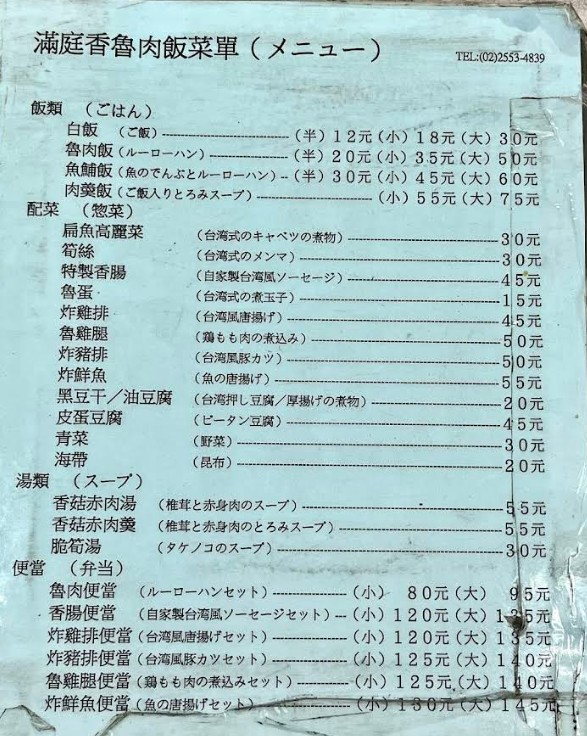 滿庭香魯肉飯菜單（メニュー）
TEL:(02)2553-4839
飯類 （ごはん）
白飯 （ご飯）----------（半）12元（小）18元（大）30元
魯肉飯（ルーローハン）----------（半）20元（小）35元（大）50元
魚鯆飯（魚のでんぶとルーローハン）--（半）30元（小）45元（大）60元
肉羹飯（ご飯入りとろみスープ）----------（小）55元（大）75元
配菜 （惣菜）
扁魚高麗菜 （台湾式のキャベツの煮物）----------30元
筍絲 （台湾式のメンマ）----------30元
特製香腸 （自家製台湾風ソーセージ）----------45元
魯蛋 （台湾式の煮玉子）----------15元
炸雞排 （台湾風唐揚げ）----------45元
魯雞腿 （鶏もも肉の煮込み）----------50元
炸豬排 （台湾風豚カツ）----------50元
炸鮮魚 （魚の唐揚げ）----------55元
黑豆干／油豆腐 （台湾押し豆腐／厚揚げの煮物）----------20元
皮蛋豆腐 （ピータン豆腐）----------45元
青菜 （野菜）----------30元
海帶 （昆布）----------20元
湯類 （スープ）
香菇赤肉湯 （椎茸と赤身肉のスープ）----------55元
香菇赤肉羹 （椎茸と赤身肉のとろみスープ）----------55元
脆筍湯 （タケノコのスープ）----------30元
便當 （弁当）
魯肉便當 （ルーローハンセット）----------（小） 80元（大） 95元
香腸便當 （自家製台湾風ソーセージセット）---（小）120元（大）135元
炸雞排便當（台湾風唐揚げセット）----------（小）120元（大）135元
炸豬排便當（台湾風豚カツセット）----------（小）125元（大）140元
魯雞腿便當（鶏もも肉の煮込みセット）-------（小）125元（大）140元
炸鮮魚便當（魚の唐揚げセット）----------（小）130元（大）145元